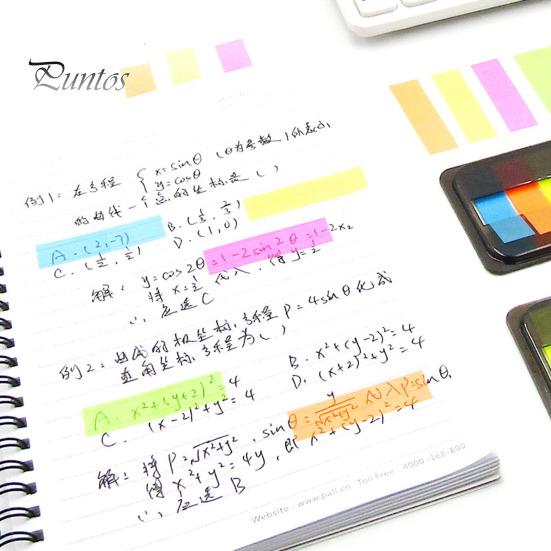 Puntos
例1: 在方程 { x=sinθ (θ为参数)所表示
y=cosθ
的曲线一点的坐标是( )
A. (2,-7) B. (1/3, 2/3)
C. (1/2, 1/2) D. (1,0)
解: y=cos2θ=1-2sin2θ=1-2x2
将 x=1/2 代入, 得 y=1/2
∴ 应选 C
例2: 曲线的极坐标方程 P=4sinθ化成
直角坐标方程为( )
A. x²+(y+2)²=4 B. x²+(y-2)²=4
C. (x-2)²+y²=4 D. (x+2)²+y²=4
解: 将 P=√x²+y², sinθ=y/√x²+y² 代入 P=sinθ,
得 x²+y²=4y, 即 x²+(y-2)²=4
∴ 应选 B
Website: www.pali.cn Toll Free: 4000-168-800